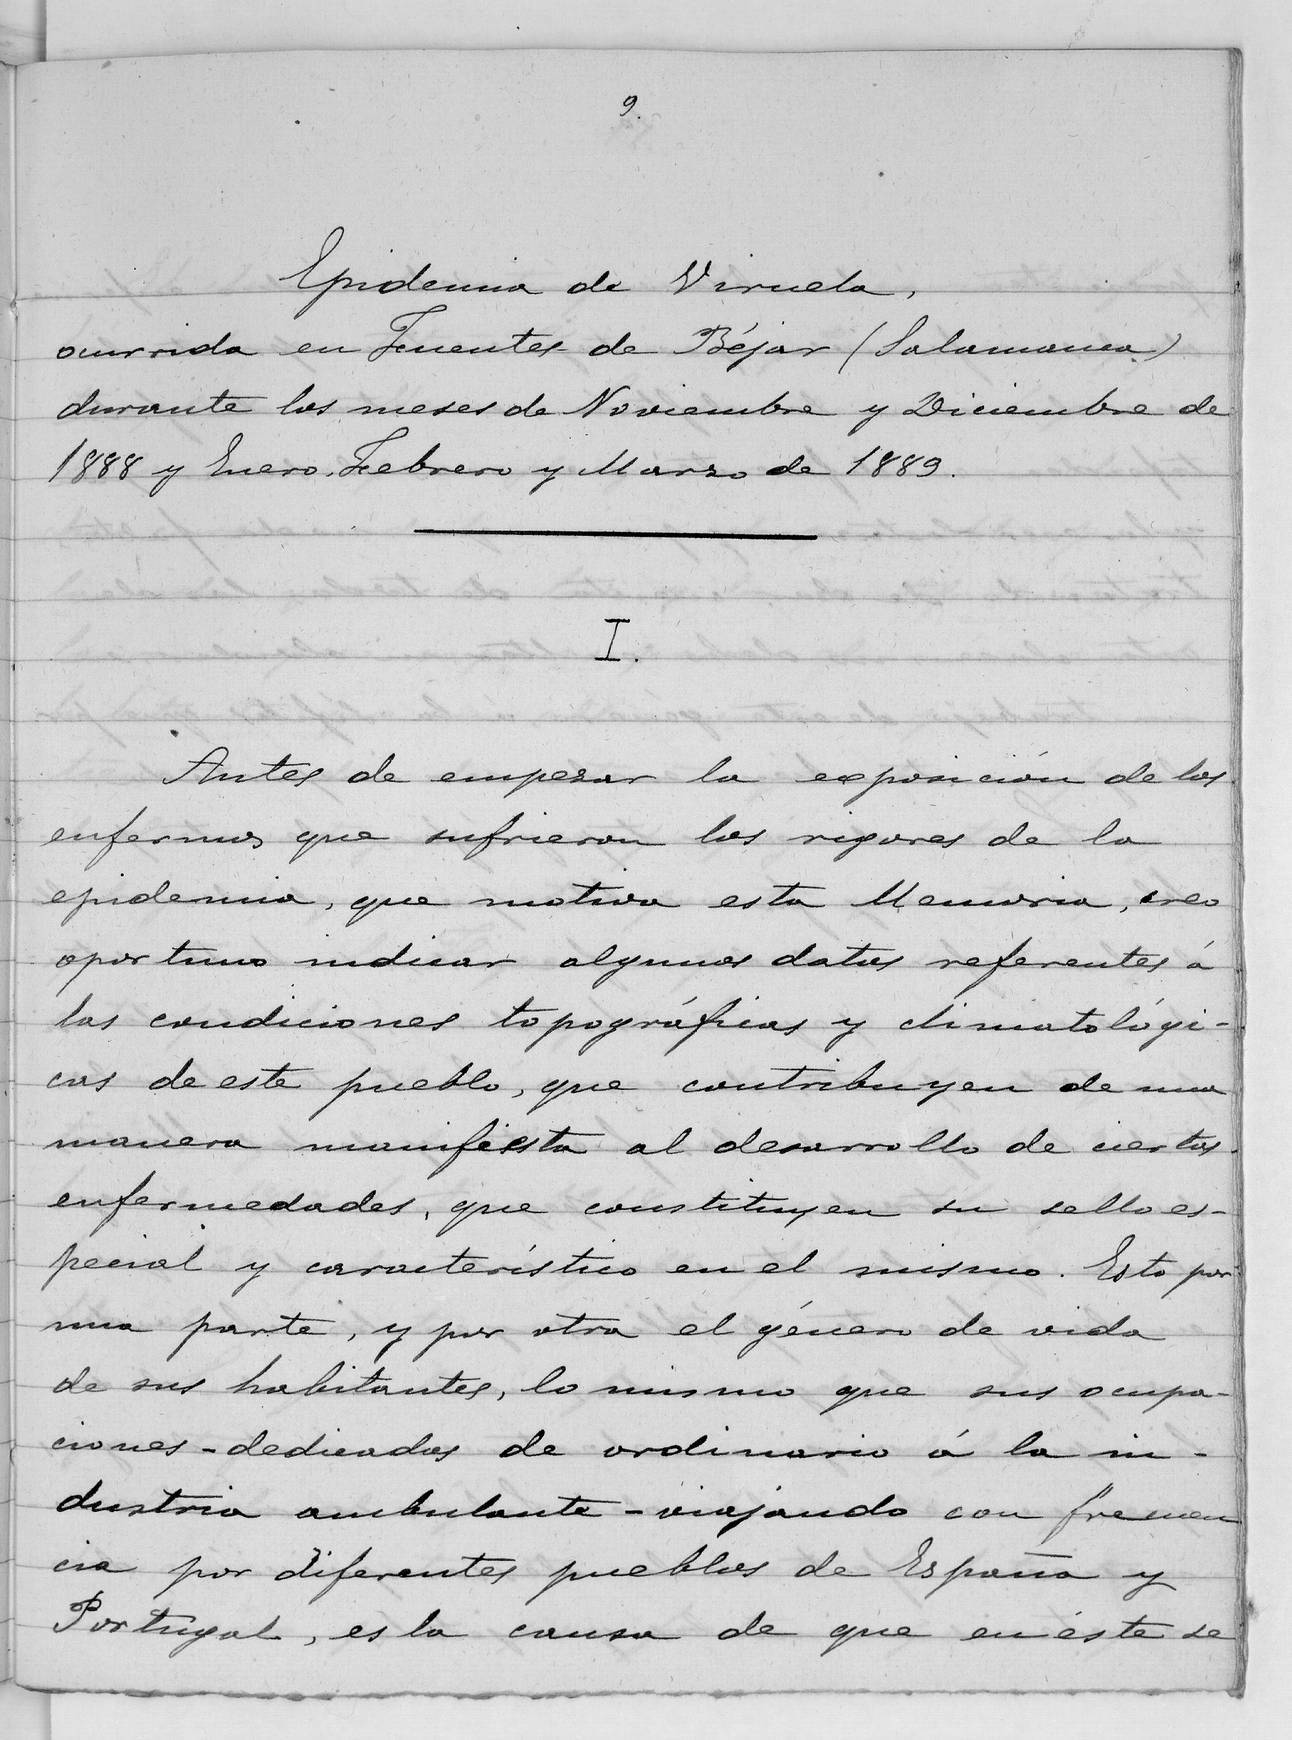 9.
Epidemia de Viruela,
ocurrida en Fuentes de Béjar (Salamanca)
durante los meses de Noviembre y Diciembre de
1888 y Enero, Febrero y Marzo de 1889.
I.
Antes de empezar la exposición de los
enfermos que sufrieron los rigores de la
epidemia, que motiva esta Memoria, creo
oportuno indicar algunos datos referentes á
las condiciones topográficas y climatológi-
cas de este pueblo, que contribuyen de una
manera manifiesta al desarrollo de ciertas
enfermedades, que constituyen su sello es-
pecial y característico en el mismo. Esto por
una parte, y por otra el género de vida
de sus habitantes, lo mismo que sus ocupa-
ciones - dedicados de ordinario á la in-
dustria ambulante - viajando con frecuen
cia por diferentes pueblos de España y
Portugal, es la causa de que en éste se